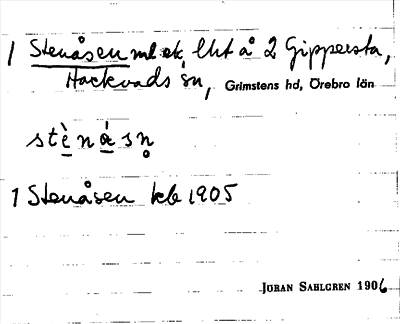 1 Stenåsen ml ek, lht å 2 Gippersta,
Hackvads sn, Grimstens hd, Örebro län
stènåsn
1 Stenåsen kb 1905
JÖRAN SAHLGREN 1906